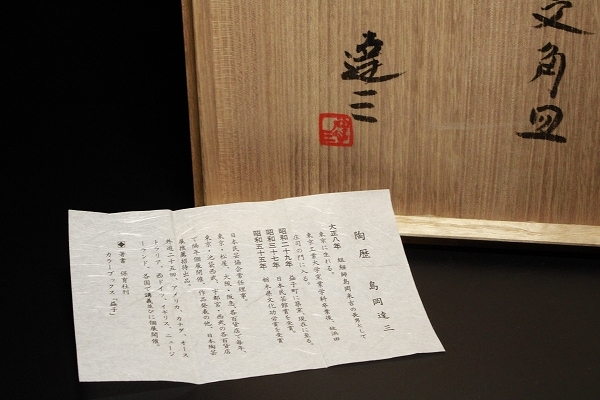 文角皿
達三
陶歴 島岡達三
大正八年 組紐師島岡米吉の長男として
東京に生れる。
東京工業大学窯業学科卒業後、故浜田
庄司の門に入る。
昭和二十九年 益子町に築窯、現在に至る。
昭和三十七年 日本民芸館賞を受賞。
昭和五十五年 栃木県文化功労賞を受賞
日本民芸協会常任理事。
東京・松屋、大阪・阪急、各百貨店で毎年、
東京・池芸西武、宇都宮・西武の各百貨店
で隔年個展開催、作品発表の他、日本陶芸
展推薦招待出品。
外遊二十五回、アメリカ、カナダ、オース
トラリア、西ドイツ、イギリス、ニュージ
ーランド、各国で講義並びに個展開催。
◆ 著書 保育社刊
カラーブックス「益子」